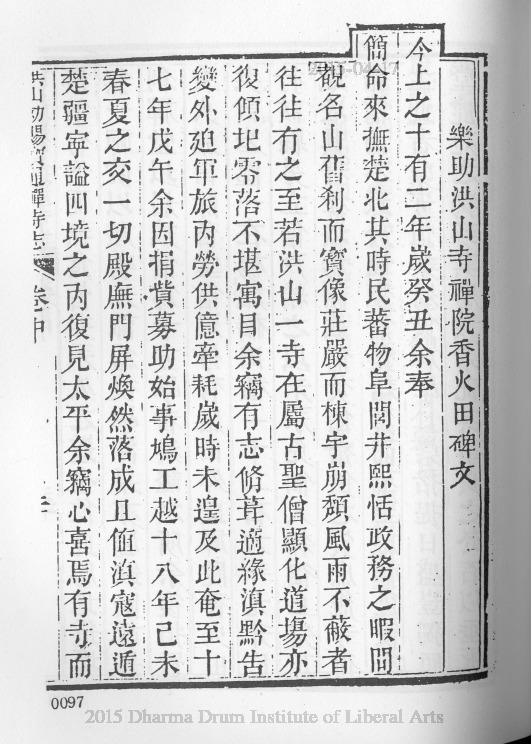 樂助洪山寺禪院香火田碑文
今上之十有二年歲癸丑余奉
簡命來撫楚北其時民蕃物阜閭井熙恬政務之暇間
觀名山舊刹而寶像莊嚴而棟宇崩頽風雨不蔽者
徃徃有之至若洪山一寺在屬古聖僧顯化道場亦
復傾圯零落不堪寓目余竊有志脩葺適緣滇黔告
變外廹軍旅内勞供億牽耗歲時未遑及此奄至十
七年戊午余因捐貲募助始事鳩工越十八年己未
春夏之交一切殿廡門屏煥然落成且值滇寇遠遁
楚疆寧謐四境之内復見太平余竊心喜焉有寺而
洪山幼陽寶通禪寺志 卷中
0097
2015 Dharma Drum Institute of Liberal Arts